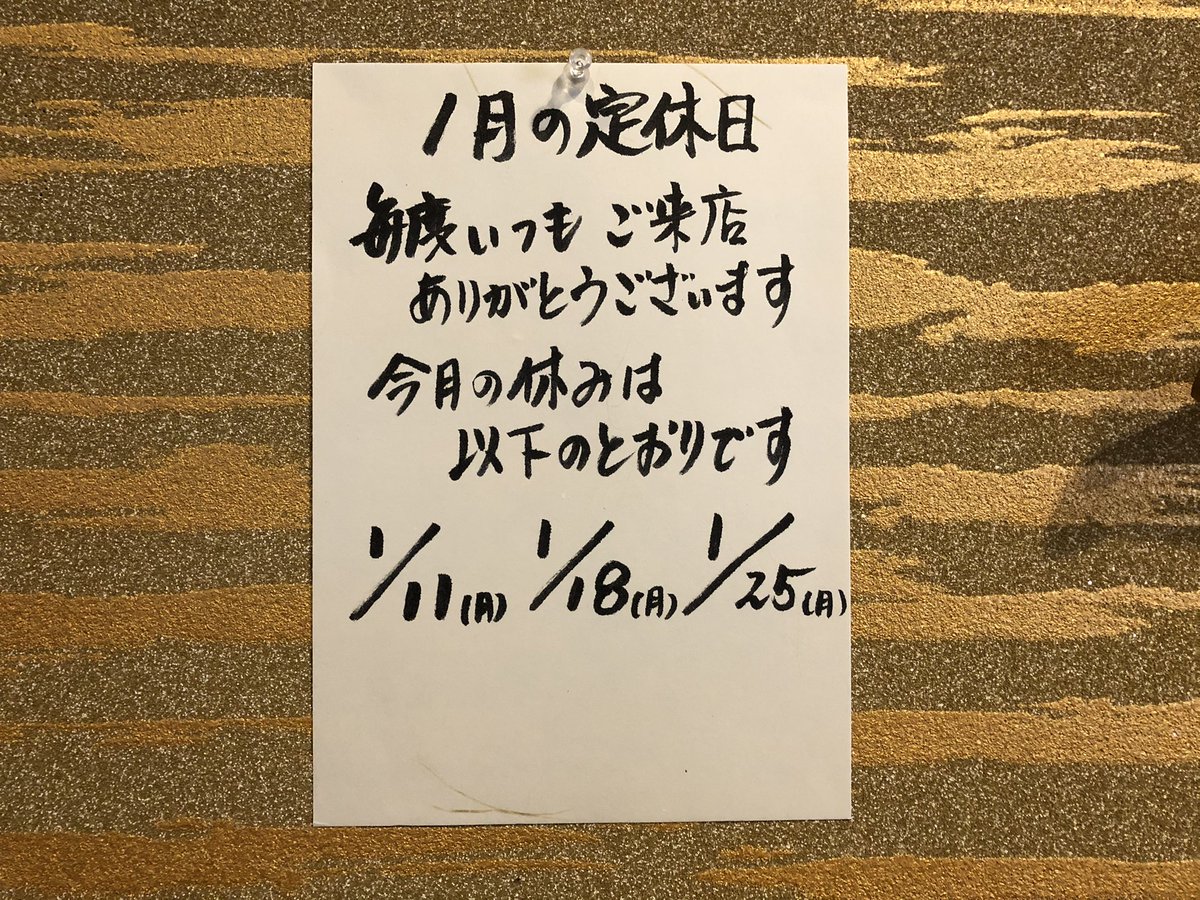 1月の定休日
毎度いつもご来店
ありがとうございます
今月の休みは
以下のとおりです
1/11(月) 1/18(月) 1/25(月)